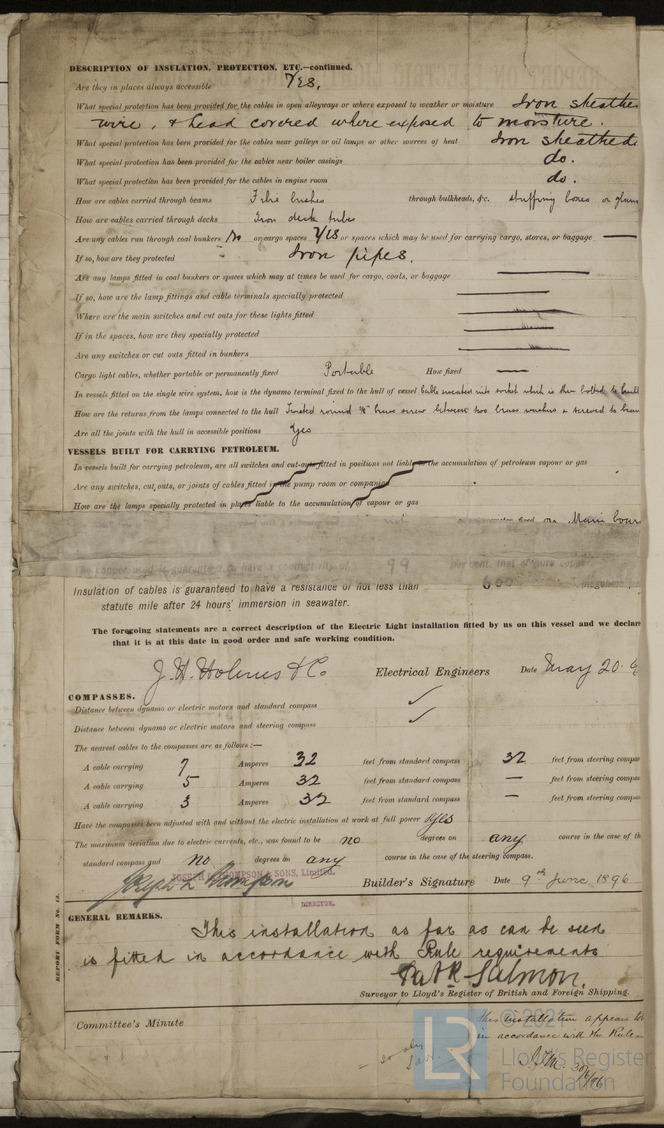 DESCRIPTION OF INSULATION, PROTECTION, ETC.—continued.
Are they in places always accessible Yes.
What special protection has been provided for the cables in open alleyways or where exposed to weather or moisture Iron sheathe
wire, & lead covered where exposed to moisture.
What special protection has been provided for the cables near galleys or oil lamps or other sources of heat Iron sheathed
What special protection has been provided for the cables near boiler casings do.
What special protection has been provided for the cables in engine room do.
How are cables carried through beams Fibre bushes through bulkheads, &c. stuffing boxes or
How are cables carried through decks Iron deck tubes
Are any cables run through coal bunkers No or cargo spaces Yes or spaces which may be used for carrying cargo, stores, or baggage —
If so, how are they protected Iron pipes.
Are any lamps fitted in coal bunkers or spaces which may at times be used for cargo, coals, or baggage —
If so, how are the lamp fittings and cable terminals specially protected —
Where are the main switches and cut outs for these lights fitted —
If in the spaces, how are they specially protected —
Are any switches or cut outs fitted in bunkers —
Cargo light cables, whether portable or permanently fixed Portable How fixed —
In vessels fitted on the single wire system, how is the dynamo terminal fixed to the hull of vessel Cable sweated into socket which is then bolted to
How are the returns from the lamps connected to the hull Twisted round brass screw between two brass washers & screwed to
Are all the joints with the hull in accessible positions Yes
VESSELS BUILT FOR CARRYING PETROLEUM.
In vessels built for carrying petroleum, are all switches and cut-outs fitted in positions not liable to the accumulation of petroleum vapour or gas
Are any switches, cut outs, or joints of cables fitted in the pump room or companion
How are the lamps specially protected in places liable to the accumulation of vapour or gas
Main
The copper used is guaranteed to have a conductivity of 99 per cent. that of pure copper
Insulation of cables is guaranteed to have a resistance of not less than 600 megohms
statute mile after 24 hours' immersion in seawater.
The foregoing statements are a correct description of the Electric Light installation fitted by us on this vessel and we declare
that it is at this date in good order and safe working condition.
J. H. Holmes & Co Electrical Engineers Date May 20. 9
COMPASSES.
Distance between dynamo or electric motors and standard compass ✓
Distance between dynamo or electric motors and steering compass ✓
The nearest cables to the compasses are as follows:—
A cable carrying 7 Amperes 32 feet from standard compass 32 feet from steering compa
A cable carrying 5 Amperes 32 feet from standard compass — feet from steering compa
A cable carrying 3 Amperes 32 feet from standard compass — feet from steering compa
Have the compasses been adjusted with and without the electric installation at work at full power Yes
The maximum deviation due to electric currents, etc., was found to be no degrees on any course in the case of th
standard compass and no degrees on any course in the case of the steering compass.
JOSEPH L. THOMPSON & SONS, Limited.
Joseph L Thompson Builder's Signature Date 9th June 1896
DIRECTOR.
REPORT FORM No. 13.
GENERAL REMARKS.
This installation as far as can be seen
is fitted in accordance with Rule requirements
Patk Salmon.
Surveyor to Lloyd's Register of British and Foreign Shipping.
Committee's Minute
This installation appears to
in accordance with the Rule
© 2021
LR
Lloyd's Register
Foundation